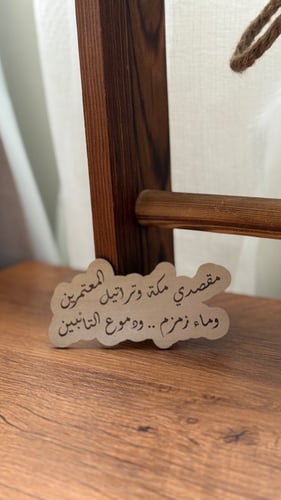 مقصدي مكة وتراتيل المعتمرين
وماء زمزم .. ودموع التائبين